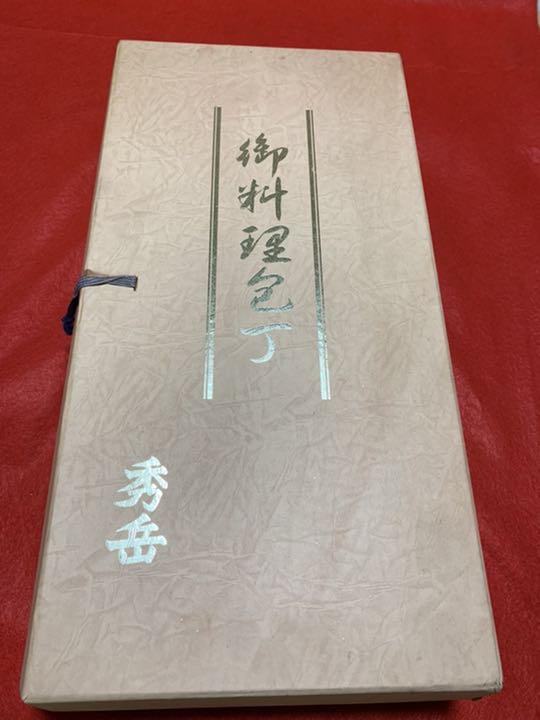 御料理包丁
秀岳